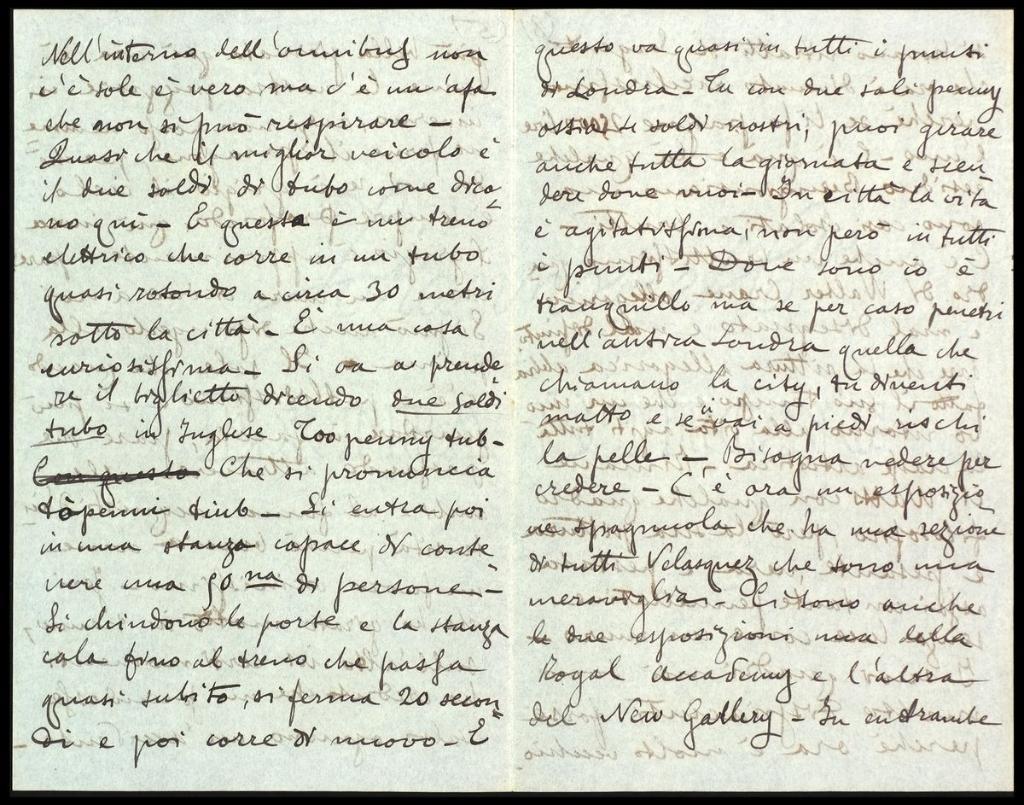 Nell'interno dell'omnibus non
c'è sole è vero ma c'è un'afa
che non si può respirare –
Quasi che il miglior veicolo è
il due soldi di tubo come dico-
no qui – E questa è un treno
elettrico che corre in un tubo
quasi rotondo a circa 30 metri
sotto la città – È una cosa
curiosissima – Si va a prende-
re il biglietto dicendo due soldi
tubo in Inglese Too penny tub –
Con questo Che si pronuncia
tòpenni tiub – Si entra poi
in una stanza capace di conte
nere una 50na di persone –
Si chiudono le porte e la stanza
cala fino al treno che passa
quasi subito, si ferma 20 secon-
di e poi corre di nuovo – E
questo va quasi in tutti i punti
di Londra – Tu con due soli penny
ossia 4 soldi nostri, puoi girare
anche tutta la giornata e scen-
dere dove vuoi – In città la vita
è agitatissima, non però in tutti
i punti – Dove sono io è
tranquillo ma se per caso penetri
nell'antica Londra quella che
chiamano la city, tu diventi
matto e se vai a piedi rischi
la pelle – Bisogna vedere per
credere – C'è ora un esposizio
ne spagnuola che ha una sezione
di tutti Velasquez che sono una
meraviglia – Ci sono anche
le due esposizioni una della
Royal Accademy e l'altra
del New Gallery – In entrambe